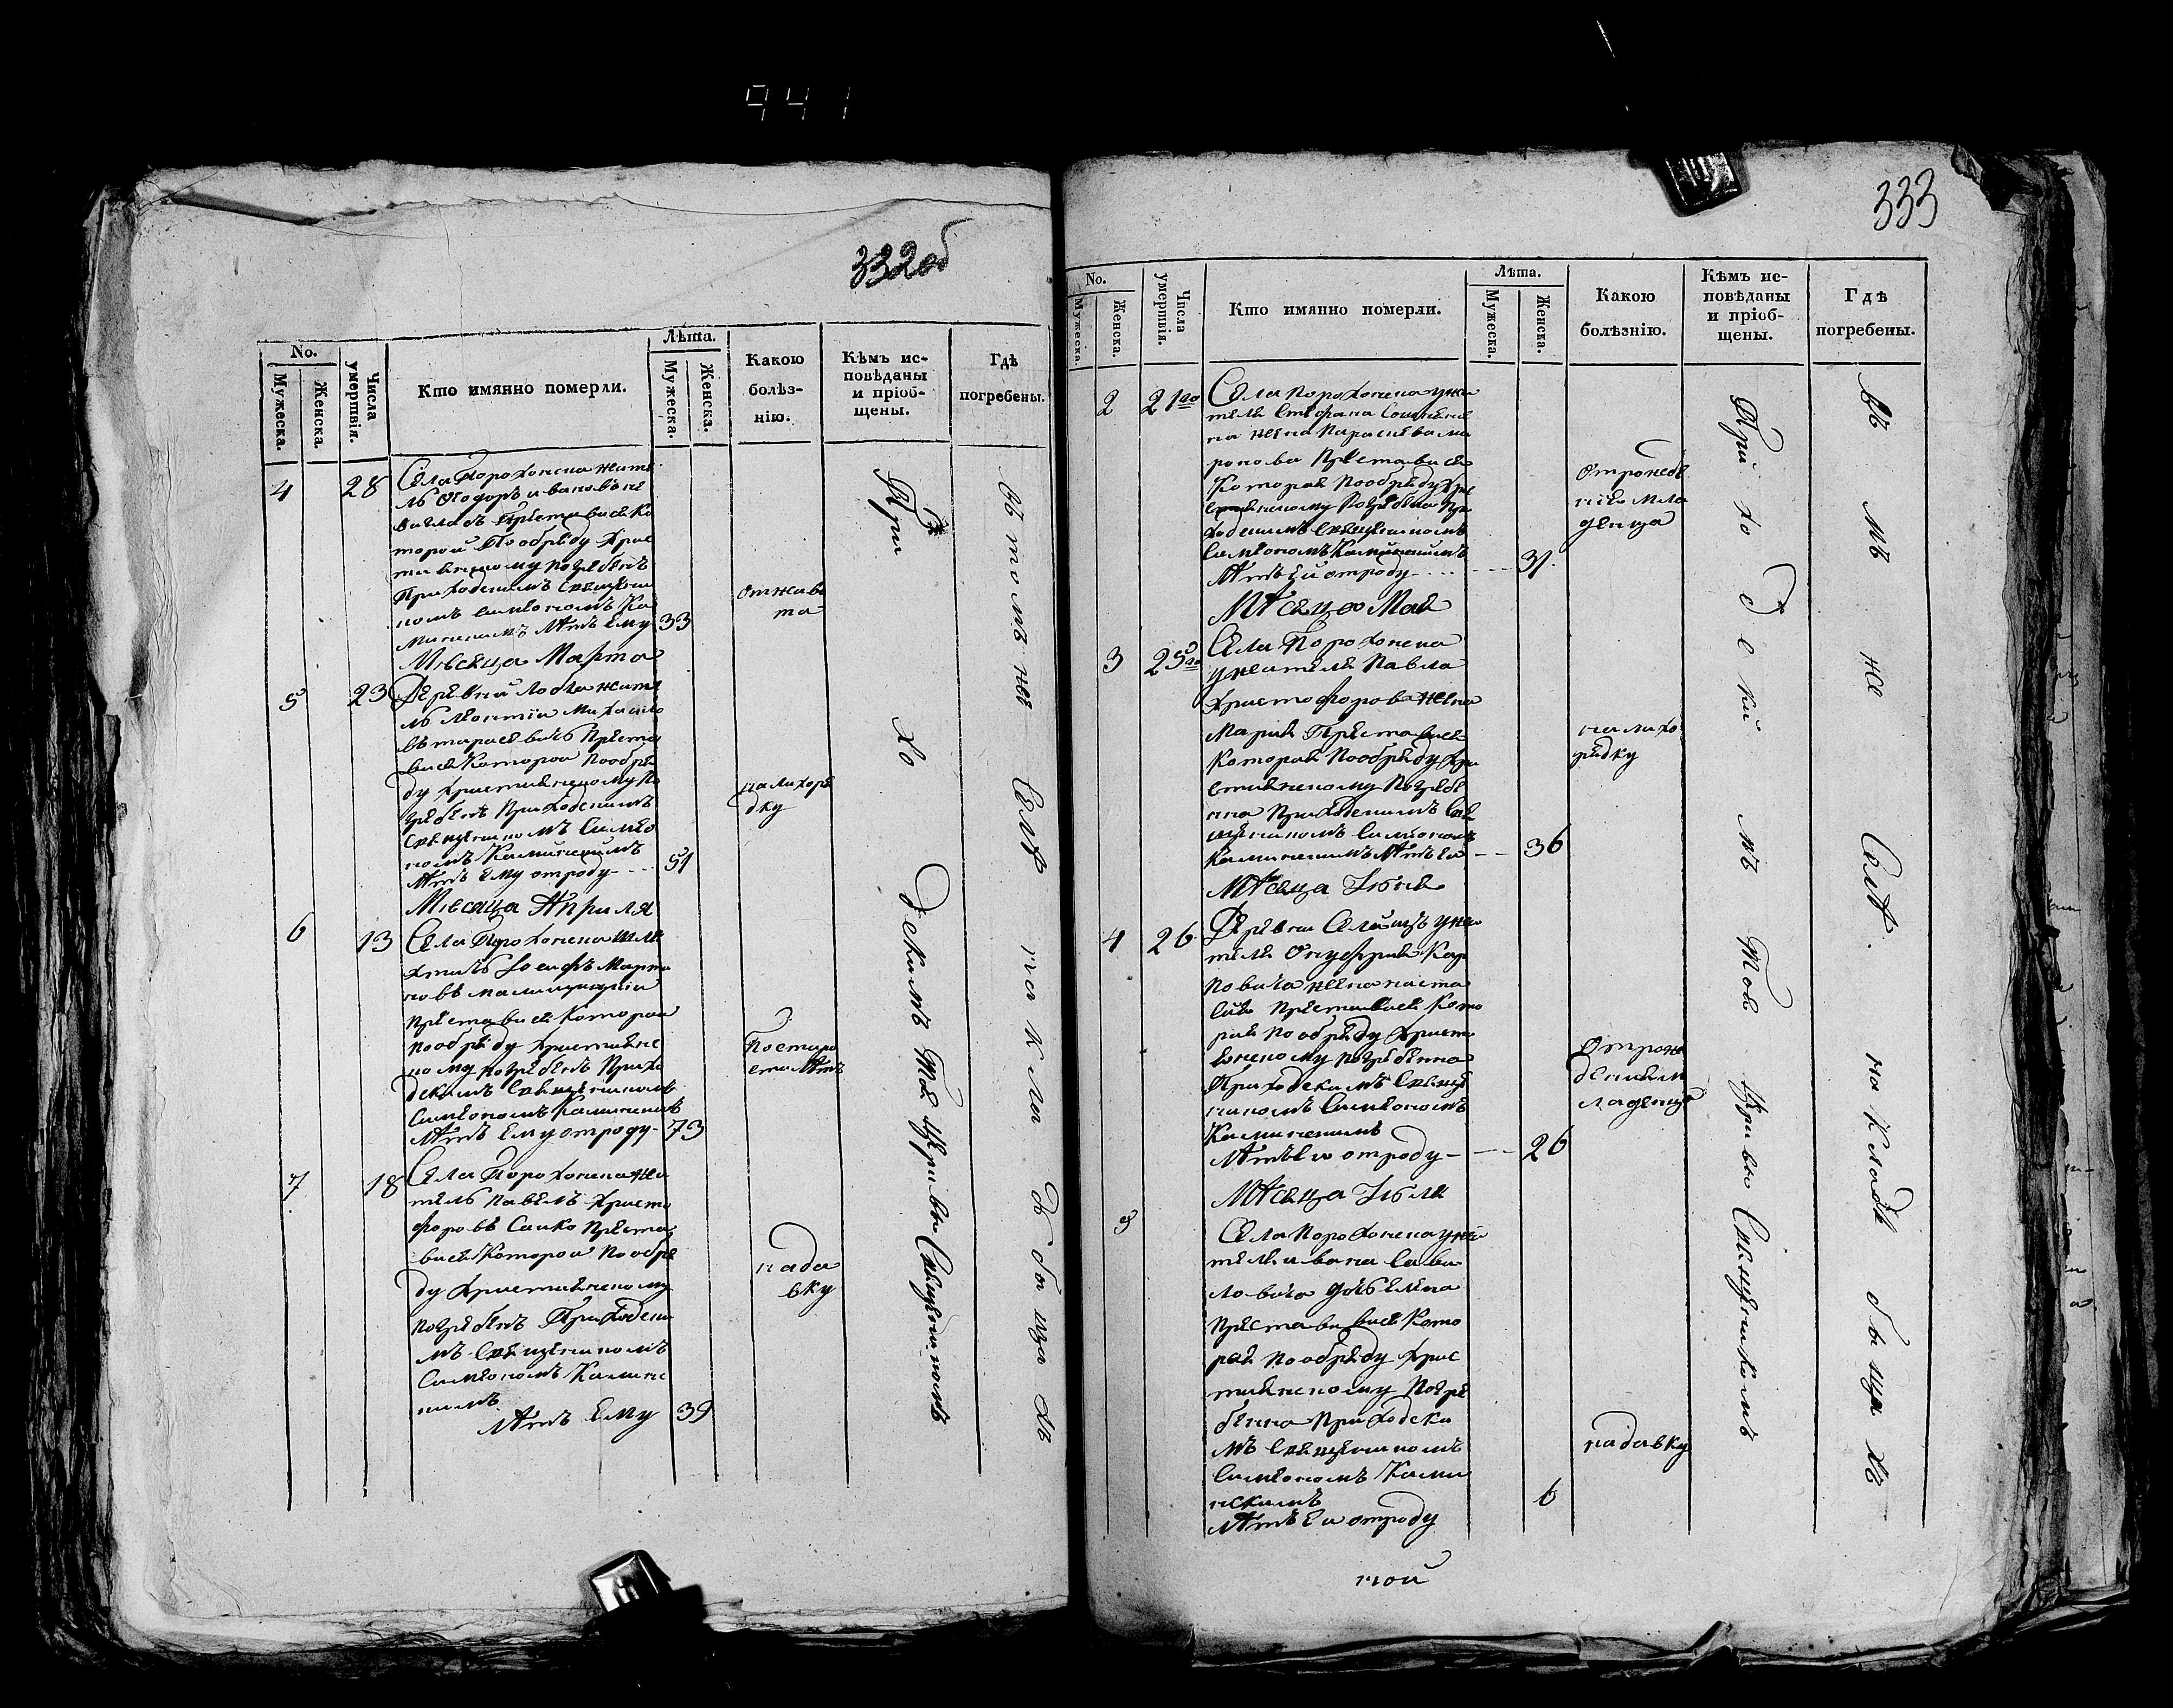 941
332об
No.
Мужеска.
Женска.
Числа умершвія.
Кто имянно померли.
Лѣта.
Мужеска.
Женска.
Какою
болѣз-
нію.
Кѣмъ ис-
повѣданы
и пріоб-
щены.
Гдѣ
погребены.
4
28
Села Порохонска жите
ль Ѳеодоръ Ивановъ
Преставися Ко
торой По обряду Хрис
тианскому погребенъ
Приходскимъ Священи
комъ Симеономъ Ка
минскимъ Лѣтъ Ему
33
от живо
та
Мѣсяца Марта
5
23
Деревни жите
ль Леонтіи Михаило
въ Преста
вися Которои По обря
ду Христианскому По
гребенъ Приходскимъ
Священикомъ Симео
номъ Каминскимъ
Лѣтъ Ему отроду
51
на лихоря
дку
Мѣсяца Априля
6
13
Села Порохонска шля
хтичъ Іосифъ Марти
новъ
Преставися Которои
по обряду Христианс
кому погребенъ Прихо
дскимъ Священикомъ
Симеономъ Каминскимъ
Лѣтъ Ему отроду
73
По старо
сти Лѣтъ
7
18
Села Порохонска жи
тель Павелъ Христо
форовъ Сацко Преста
вися Которои По обря
ду Христианскому
погребенъ Приходски
мъ Священикомъ
Симеономъ Каминс
кимъ
Лѣтъ Ему
39
на да
вку
Приходскимъ Тоя Церкви Священикомъ
Въ томъ же Селѣ на Кладбищахъ
333
No.
Мужеска.
Женска.
Числа умершвія.
Кто имянно померли.
Лѣта.
Мужеска.
Женска.
Какою
болѣзнію.
Кѣмъ ис-
повѣданы
и пріоб-
щены.
Гдѣ
погребены.
2
21го
Села Порохонска
теля Стефана
на жена Параскева
Преставися
Которая По обряду Хри
стианскому Погребена При
ходскимъ Священикомъ
Симеономъ Каминскимъ
Лѣтъ Еи отроду
31
от рожде
нія мла
денца
Мѣсяца Мая
3
25го
Села Порохонска
жителя Павла
Христофорова жена
Мария Преставися
Которая По обряду Хри
стианскому Погребе
нна Приходскимъ Свя
щеникомъ Симеономъ
Каминскимъ Лѣтъ Еи
36
на лихо
рядку
Мѣсяца Іюня
4
26
Деревни Селищъ
теля Онуфрия Кар
повича жена Наста
сия Преставися Кото
рая По обряду Христи
анскому погребенна
Приходскимъ Свяще
никомъ Симеономъ
Каминскимъ
Лѣтъ Еи отроду
26
От рож
дения м
ладенца
Мѣсяца Іюля
5
Села Порохонска
теля Ивана Сави
ловича дочь Елена
Преставися Кото
рая По обряду Хрис
тианскому Погре
бенна Приходски
мъ Священикомъ
Симеономъ Ками
нскимъ
Лѣтъ Еи отроду
6
на давку
Приходскимъ Тоя Церквы Священикомъ
Въ томъ же Селѣ на Кладбищахъ
ной